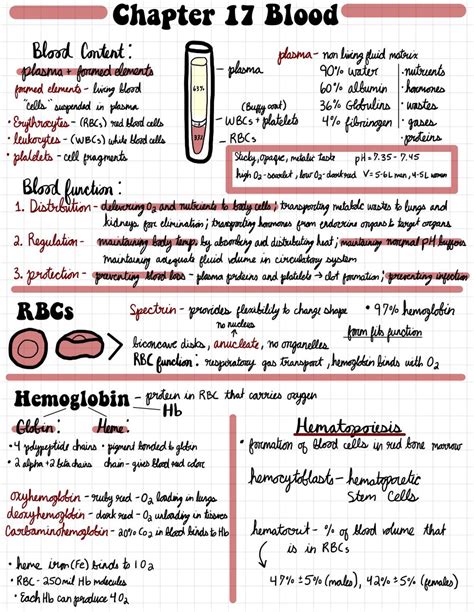 Chapter 17 Blood
Blood Content:
plasma + formed elements
formed elements - living blood
"cells" suspended in plasma
• Erythrocytes - (RBCs) red blood cells
• leukocytes - (WBCs) white blood cells
• platelets - cell fragments
plasma
(Buffy coat)
WBCs + platelets
RBCs
plasma - non living fluid matrix
90% water
60% albumin
36% Globulins
4% fibrinogen
• nutrients
• hormones
• wastes
• gases
• proteins
Sticky, opaque, metallic taste pH = 7.35 - 7.45
high O2 - scarlet, low O2 - dark red V = 5-6L men, 4-5L women
Blood function:
1. Distribution - delivering O2 and nutrients to body cells; transporting metabolic wastes to lungs and
kidneys for elimination; transporting hormones from endocrine organs to target organs
2. Regulation - maintaining body temp by absorbing and distributing heat; maintaining normal pH buffers
maintaining adequate fluid volume in circulatory system
3. protection - preventing blood loss - plasma proteins and platelets → clot formation; preventing infection
RBCs
Spectrin - provides flexibility to change shape
• 97% hemoglobin
no nucleus
form fits function
biconcave disks, anucleate, no organelles
RBC function: respiratory gas transport, hemoglobin binds with O2
Hemoglobin - protein in RBC that carries oxygen
Hb
Globin:
• 4 polypeptide chains
• 2 alpha + 2 beta chains
Heme:
• pigment bonded to globin
chain - gives blood red color
oxyhemoglobin - ruby red - O2 loading in lungs
deoxyhemoglobin - dark red - O2 unloading in tissues
Carbaminohemoglobin - 20% Co2 in blood binds to Hb
• heme iron (Fe) binds to 1 O2
• RBC - 250 mil Hb molecules
• Each Hb can produce 4 O2
Hematopoiesis
• formation of blood cells in red bone marrow
hemocytoblasts - hematopoietic
Stem Cells
hematocrit - % of blood volume that
is in RBCs
47% ± 5% (males), 42% ± 5% (females)